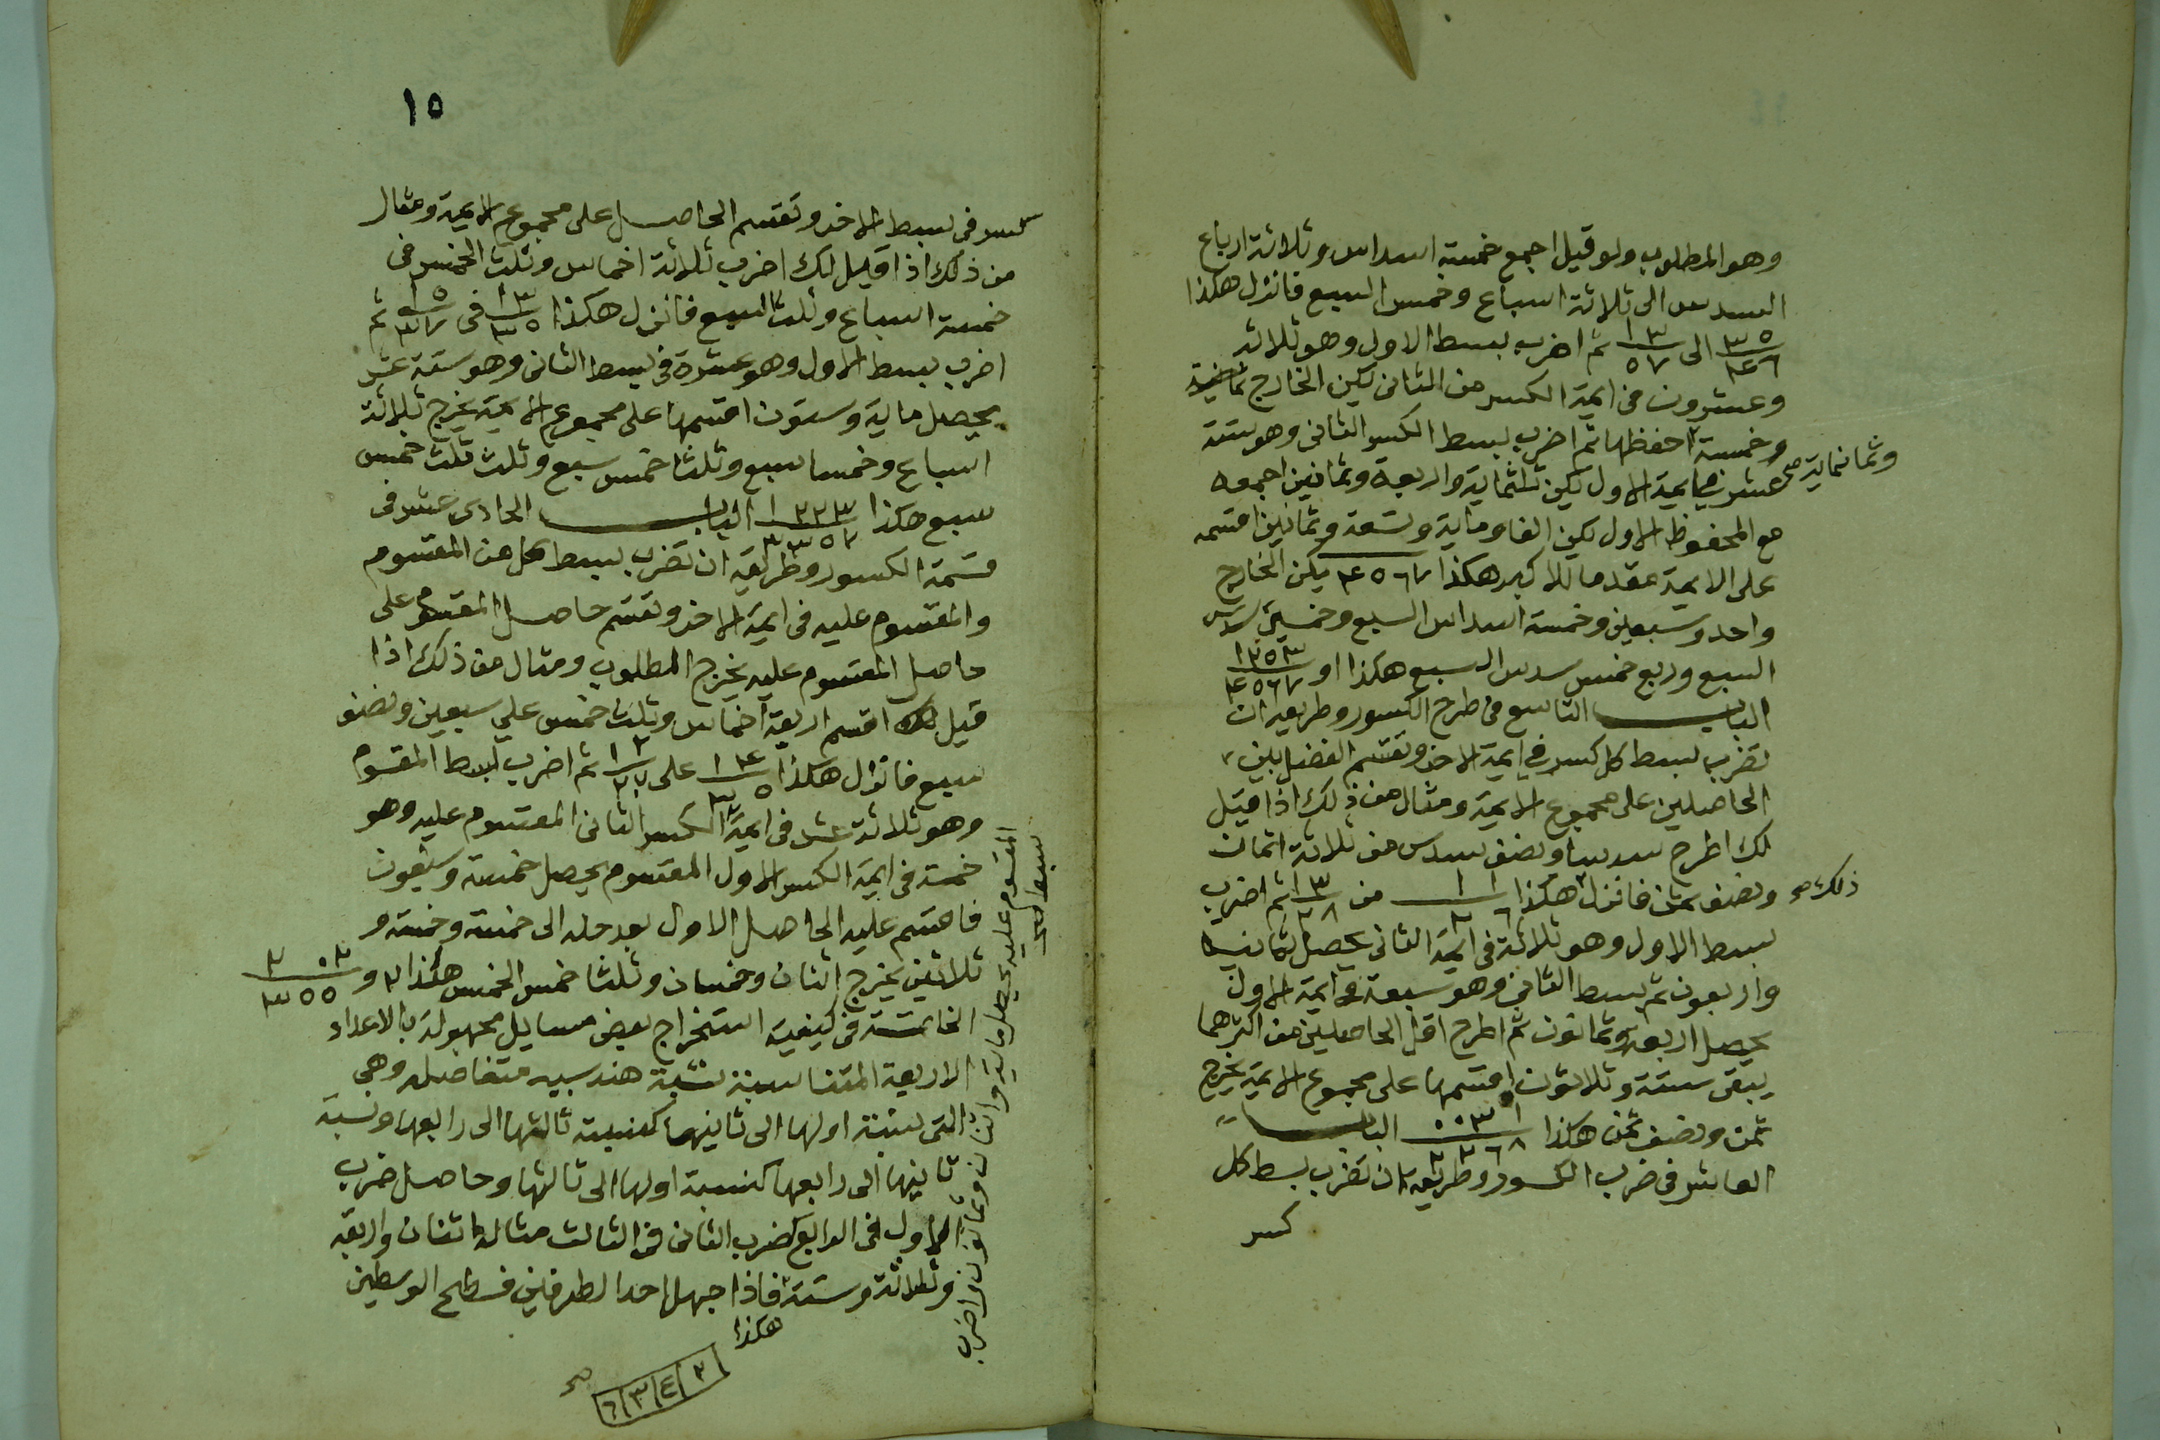 وهو المطلوب ولو قيل اجمع خمسة اسداس وثلاثة ارباع
السدس الى ثلاثة اسباع وخمس السبع فانزل هكذا
٣ ٥ / ٤ ٦ الى ١ ٣ / ٥ ٧ ثم اضرب بسط الاول وهو ثلاثة
وعشرون فى ايمة الكسر من الثانى يكن الخارج
وخمسة احفظها ثم اضرب بسط الكسر الثانى وهو ستة
وثمانماية صح
عشر فى ايمة الاول يكن ثلثماية واربعة وثمانين اجمعه
مع المحفوظ الاول يكن الفا وماية وتسعة وثمانين اقسمه
على الايمة مقدما للاكبر هكذا ٤ ٥ ٦ ٧ يكن الخارج
واحد وسبعين وخمسة اسداس السبع وخمسين سدس
السبع وربع خمس سدس السبع هكذا ١ و ١ ٢ ٥ ٢ / ٤ ٥ ٦ ٧
الباب التاسع فى طرح الكسور وطريقه ان
تضرب بسط كل كسر فى ايمة الاخر وتقسم الفضل بين
الحاصلين على مجموع الايمة ومثال من ذلك اذا قيل
لك اطرح سدسا ونصف سدس من ثلاثة اثمان
ونصف ثمن فانزل هكذا ١ ١ / ٢ ٦ من ١ ٣ / ٢ ٨ ثم اضرب
ذلك صح
بسط الاول وهو ثلاثة فى ايمة الثانى يحصل ثمانية
واربعون ثم بسط الثانى وهو سبعة فى ايمة الاول
يحصل اربعة وثمانون ثم اطرح اقل الحاصلين من اكثرهما
يبقى ستة وثلاثون اقسمها على مجموع الايمة يخرج
ثمن ونصف ثمن هكذا ٠ ٠ ٣ ١ / ٢ ٢ ٦ ٨ الباب
العاشر فى ضرب الكسور وطريقه ان تضرب بسط كل
كسر
١٥
كسر فى بسط الاخر وتقسم الحاصل على مجموع الايمة ومثال
من ذلك اذا قيل لك اضرب ثلاثة اخماس وثلث الخمس فى
خمسة اسباع وثلث السبع فانزل هكذا ١ ٣ / ٣ ٥ فى ١ ٥ / ٣ ٧ ثم
اضرب بسط الاول وهو عشرة فى بسط الثانى وهو ستة عشر
يحصل ماية وستون اقسمها على مجموع الايمة يخرج ثلاثة
اسباع وخمسا سبع وثلثا خمس سبع وثلث ثلث خمس
سبع هكذا ١ ٢ ٢ ٣ / ٣ ٣ ٥ ٧ الباب الحادى عشر فى
قسمة الكسور وطريقه ان تضرب بسط كل من المقسوم
والمقسوم عليه فى ايمة الاخر وتقسم حاصل المقسوم على
حاصل المقسوم عليه يخرج المطلوب ومثال من ذلك اذا
قيل لك اقسم اربعة اخماس وثلث خمس على سبعين ونصف
سبع فانزل هكذا ١ ٤ / ٣ ٥ على ١ ٢ / ٢ ٧ ثم اضرب بسط المقسوم
وهو ثلاثة عشر فى ايمة الكسر الثانى المقسوم عليه وهو
خمسة فى ايمة الكسر الاول المقسوم يحصل خمسة وسبعون
فاقسم عليه الحاصل الاول بعد حله الى خمسة وخمسة و
ثلاثة يخرج اثنان وخمسان وثلثا خمس الخمس هكذا ٢ و ٢ ٠ ٢ / ٣ ٥ ٥
الخاتمة فى كيفية استخراج بعض مسايل مجهولة بالاعداد
الاربعة المتناسبة نسبة هندسيه متفاضله وهى
التى نسبة اولها الى ثانيها كنسبة ثالثها الى رابعها ونسبة
ثانيها الى رابعها كنسبة اولها الى ثالثها وحاصل ضرب
الاول فى الرابع كضرب الثانى فى الثالث مثاله اثنان واربعة
وثلاثة وستة فاذا جهل احد الطرفين فسطح الوسطين
هكذا
٢ ٤ ٣ ٦ صح
المقسوم عليه يحصل ماية واثنان وثمانون واضرب
بسط